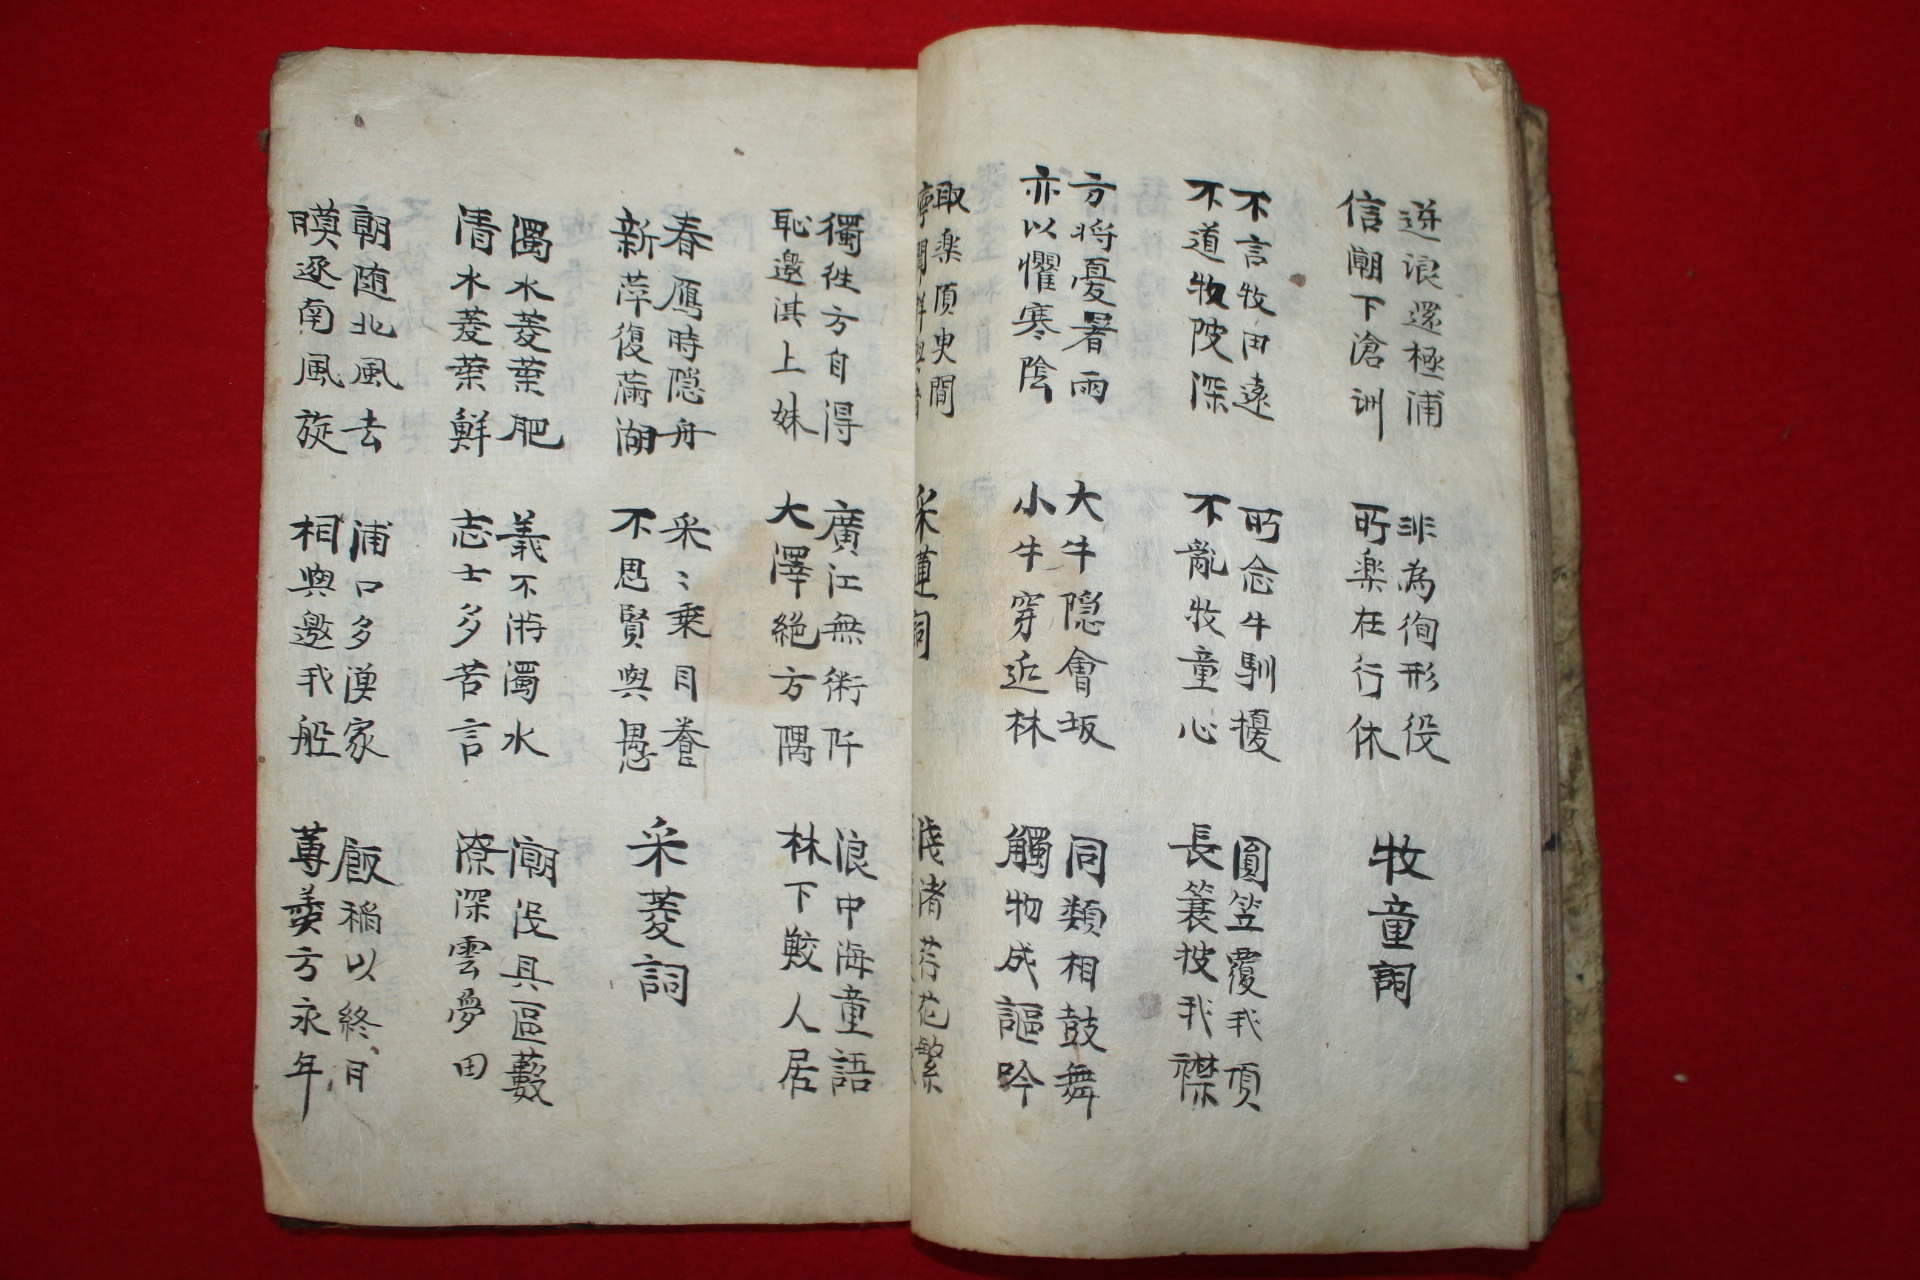 逆浪還極浦
信潮下滄訓
非為徇形役
所楽在行休
牧童詞
不言牧田遠
不道牧陂深
所念牛馴擾
不亂牧童心
圓笠覆我頂
長蓑披我襟
方将憂暑雨
亦以懼寒陰
大牛隠會坂
小牛穿近林
同類相鼓舞
觸物成謳吟
取楽須臾間
寧聞
采蓮詞
浅渚荇花繁
獨往方自得
恥邀淇上妹
廣江無術阡
大澤絶方隅
浪中海童語
林下鮫人居
春鴈時隠舟
新萍復滿湖
采〻乗日養
不思賢與愚
采菱詞
濁水菱葉肥
清水菱葉鮮
義不游濁水
志士多苦言
潮没具區藪
潦深雲夢田
朝随北風去
逐南風旋
浦口多漁家
相與邀我舩
飯稲以終日
蓴羹方永年